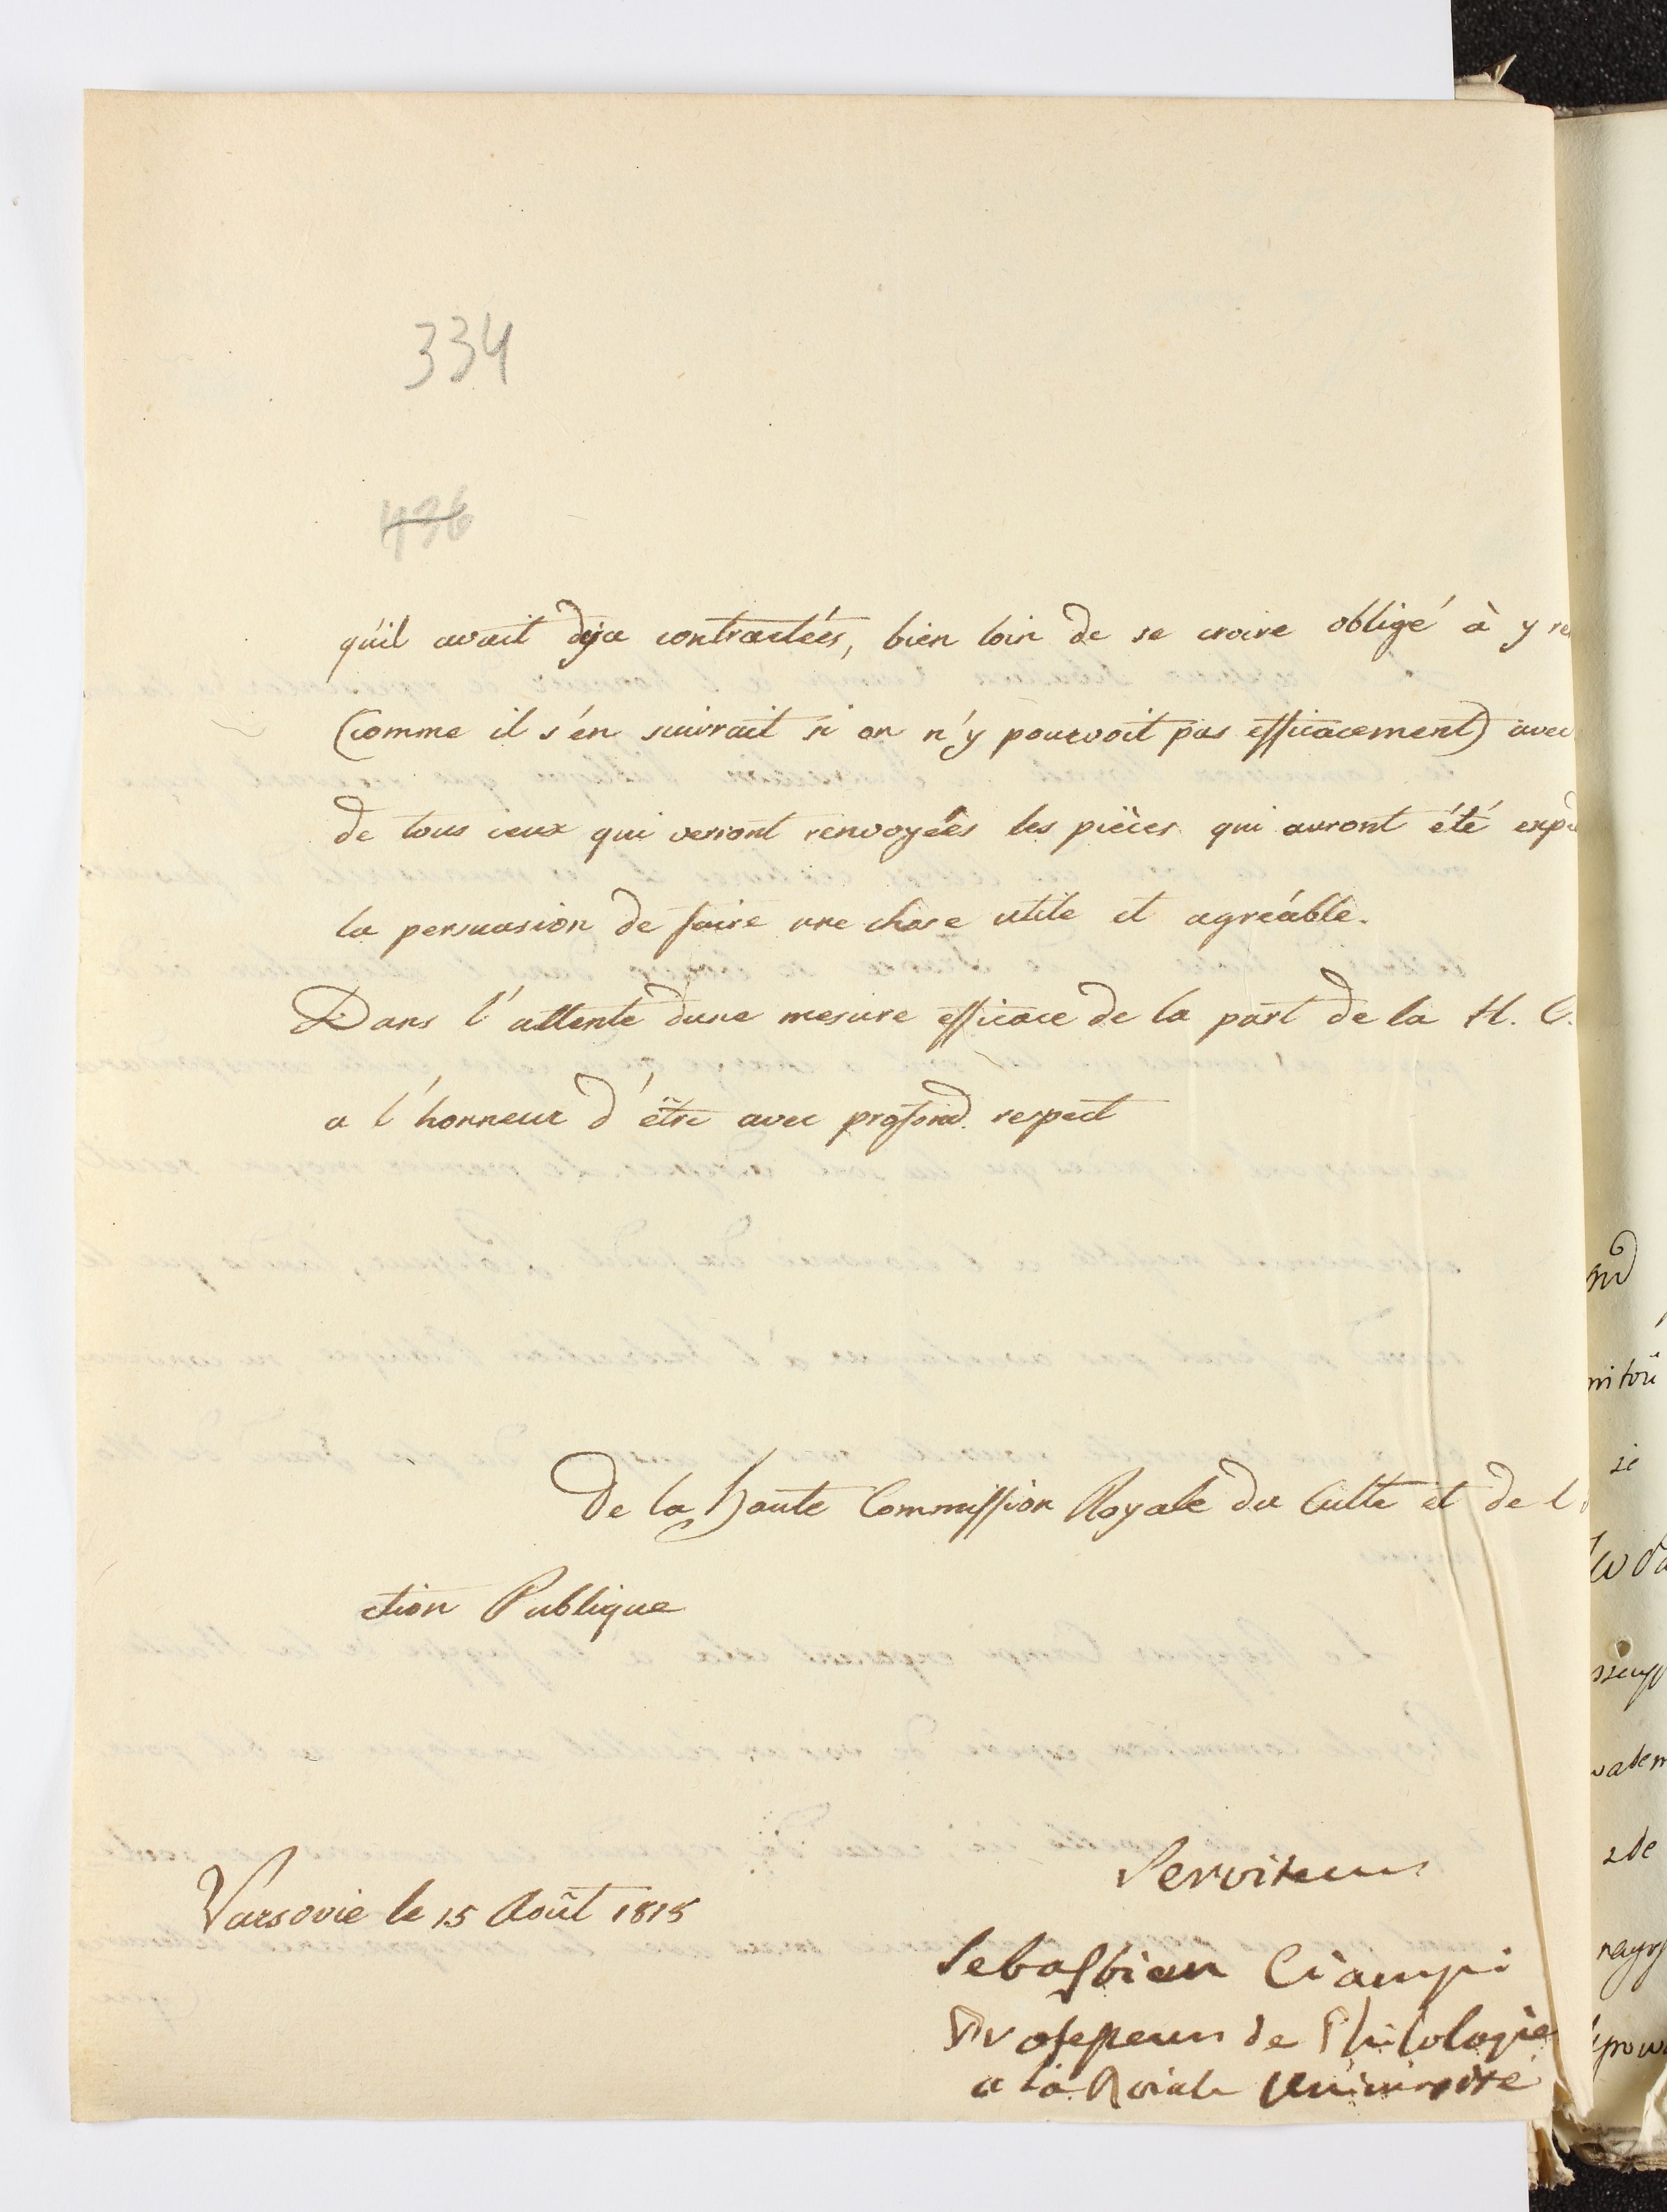 334
436
qu'il avait deja contractées, bien loin de se croire obligé à y re
(comme il s'en suivrait si on n'y pourvoit pas efficacement) avec
de tous ceux qui verront renvoyées les pièces qui auront été expé
la persuasion de faire une chose utile et agréable.
Dans l'attente dune mesure efficace de la part de la H. C.
a l'honneur d'être avec profond respect
De la haute Commission Royale du Culte et de l
ction Publique
Serviteur
Varsovie le 15 Août 1818
Sebastien Ciampi
Professeur de Philologie
a la Roiale Université